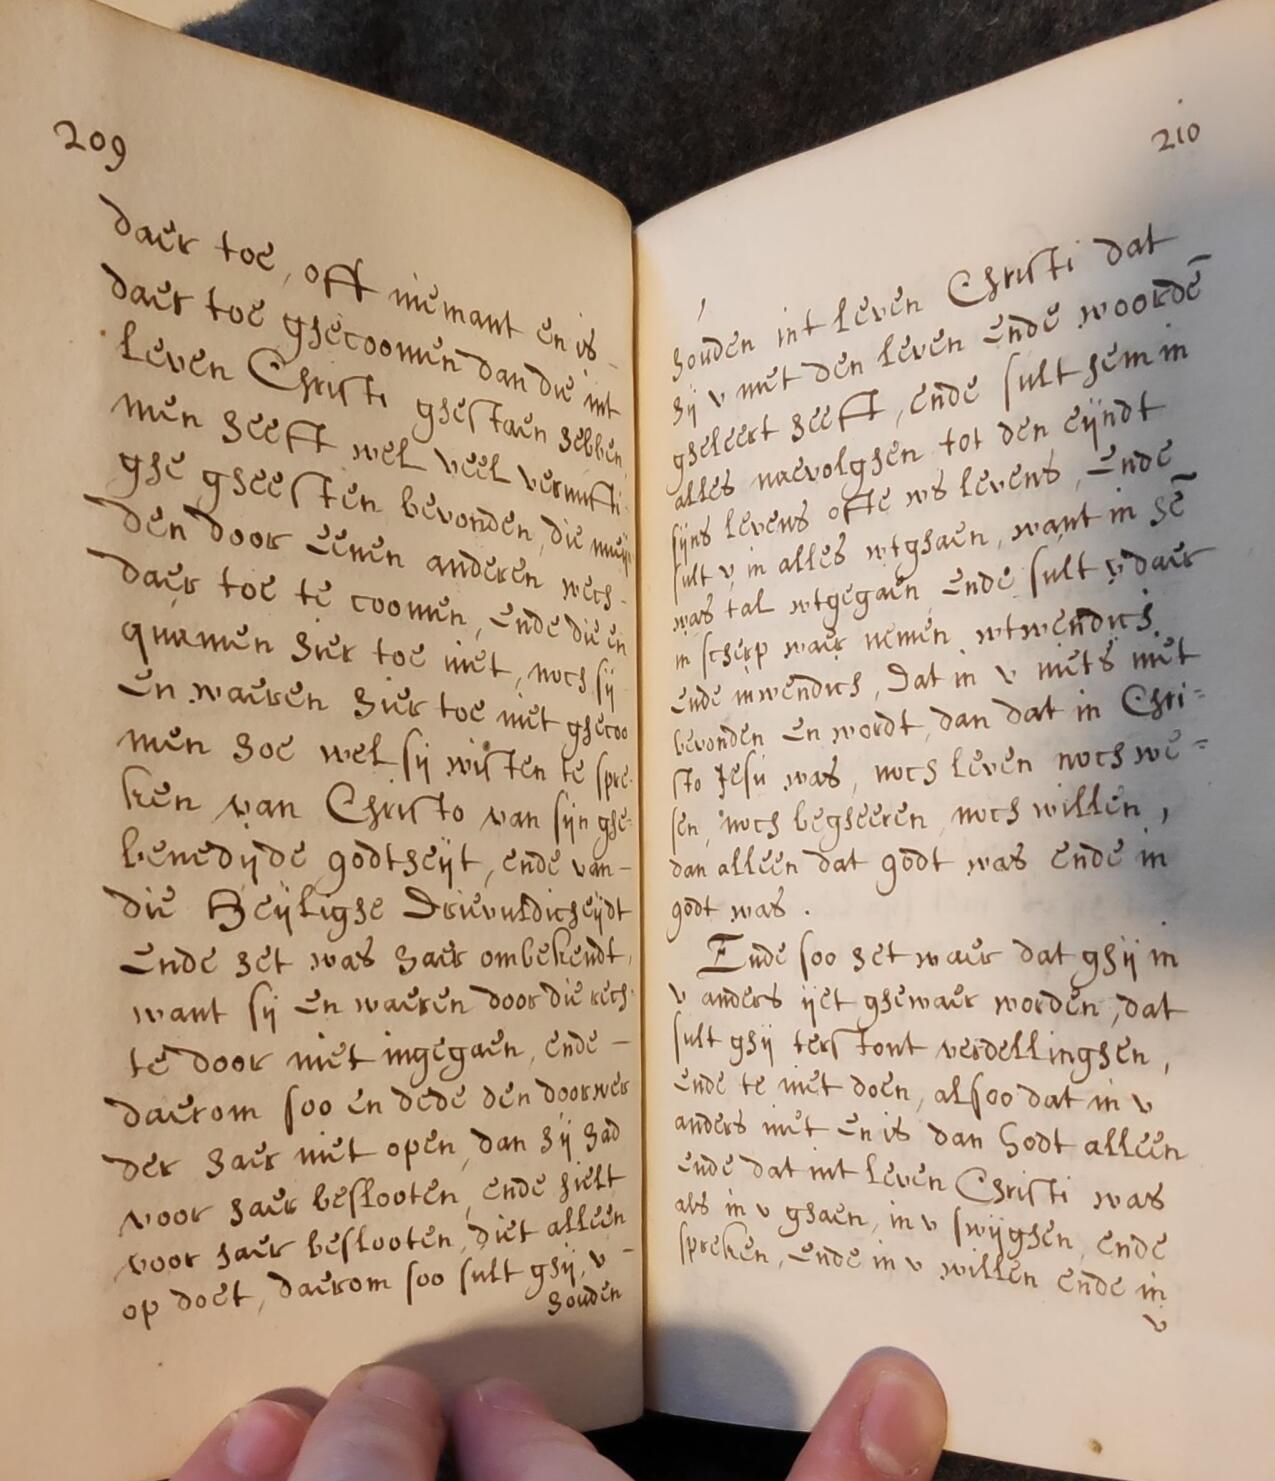 209
daer toe, oft niemant en is
daer toe ghecoomen dan die int
leven Christi ghestaen hebben
men heeft wel veel vernufti
ghe gheesten bevonden, die
den door eenen anderen wech
daer toe te coomen, ende die en
quamen hier toe niet, noch sij
en waeren hier toe niet ghecoo
men hoe wel sij wisten te spre-
ken van Christo van sijn ghe-
benedijde godtheijt, ende van –
die Heijlighe Drievuldicheijdt
ende het was haer ombekendt,
want sij en waeren door die rech-
te door niet ingegaen, ende –
daerom soo en dede den doorwer
der haer niet open, dan hij had
voor haer beslooten, ende hielt
voor haer beslooten, diet alleen
op doet, daerom soo sult ghij, v –
houden
210
houden int leven Christi dat
hij v met den leven ende woordē
gheleert heeft, ende sult hem in
alles naevolghen tot den eijndt
sijns levens ofte ws levens, ende
sult v in alles wtghaen, want in hē
was tal wtgegaen ende sult v daer
in scherp waer nemen wtwendich
ende inwendich, dat in v niets niet
bevonden en wordt, dan dat in Chri=
sto Jesu was, noch leven noch we=
sen, noch begheeren, noch willen,
dan alleen dat godt was ende in
godt was.
Ende soo het waer dat ghij in
v anders ijet ghewaer worden, dat
sult ghij terstont verdellinghen,
ende te niet doen, alsoo dat in v
anders niet en is dan Godt alleen
ende dat int leven Christi was
als in v ghaen, in v swijghen, ende
spreken, ende in v willen ende in
v